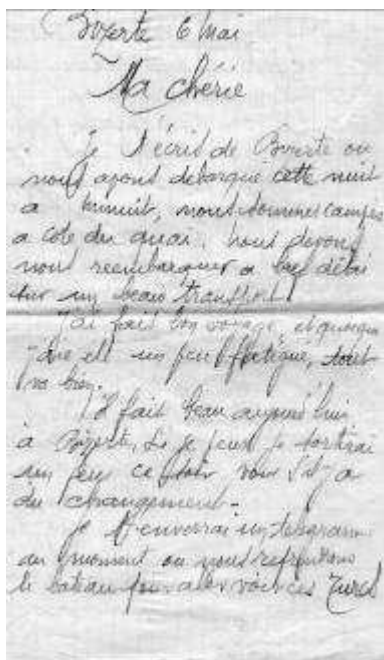 Bizerte 6 Mai
Ma chérie
Je t'écris de Bizerte ou
nous avons debarqué cette nuit
a minuit, nous sommes campés
a coté du quai. nous devons
nous reembarquer a bref délai
sur un beau transport.
J'ai fait bon voyage, et quoique
un peu fatigué, tout
va bien.
Il fait beau aujourd'hui
à Bizerte, Si je peux je sortirai
un peu ce soir voir s'il y a
du changement.
Je t'enverrai un
au moment ou nous reprendrons
le bateau pour aller voir ces Turcs